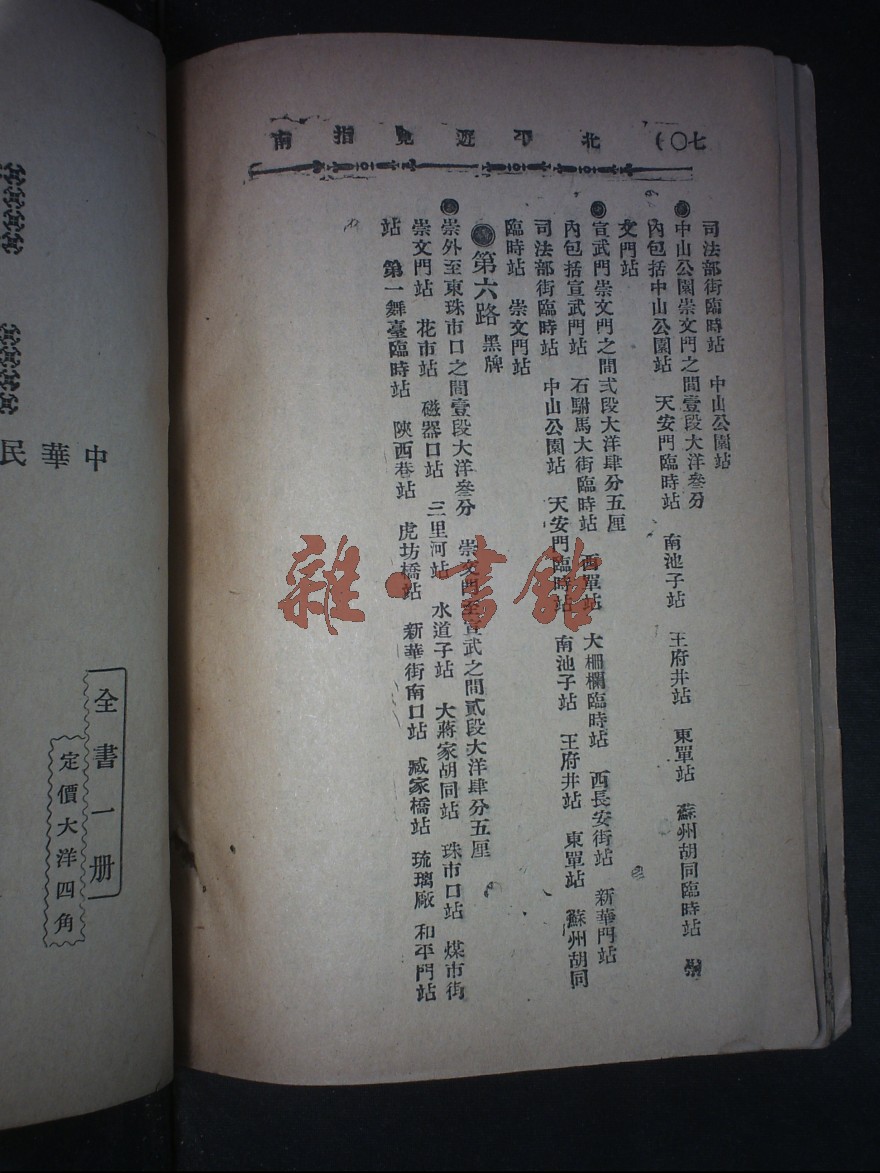 北平遊覽指南
七〇)
司法部街臨時站　中山公園站
●中山公園崇文門之間壹段大洋叄分
內包括中山公園站　天安門臨時站　南池子站　王府井站　東單站　蘇州胡同臨時站　崇
文門站
●宣武門崇文門之間弍段大洋肆分五厘
內包括宣武門站　石駙馬大街臨時站　西單站　大柵欄臨時站　西長安街站　新華門站
司法部街臨時站　中山公園站　天安門臨時站　南池子站　王府井站　東單站　蘇州胡同
臨時站　崇文門站
●第六路　黑牌
●崇外至東珠市口之間壹段大洋叄分　崇文門至宣武之間貳段大洋肆分五厘
崇文門站　花市站　磁器口站　三里河站　水道子站　大蔣家胡同站　珠市口站　煤市街
站　第一舞臺臨時站　陝西巷站　虎坊橋站　新華街南口站　臧家橋站　琉璃廠　和平門站
中華民
全書一册
定價大洋四角
雜·書館